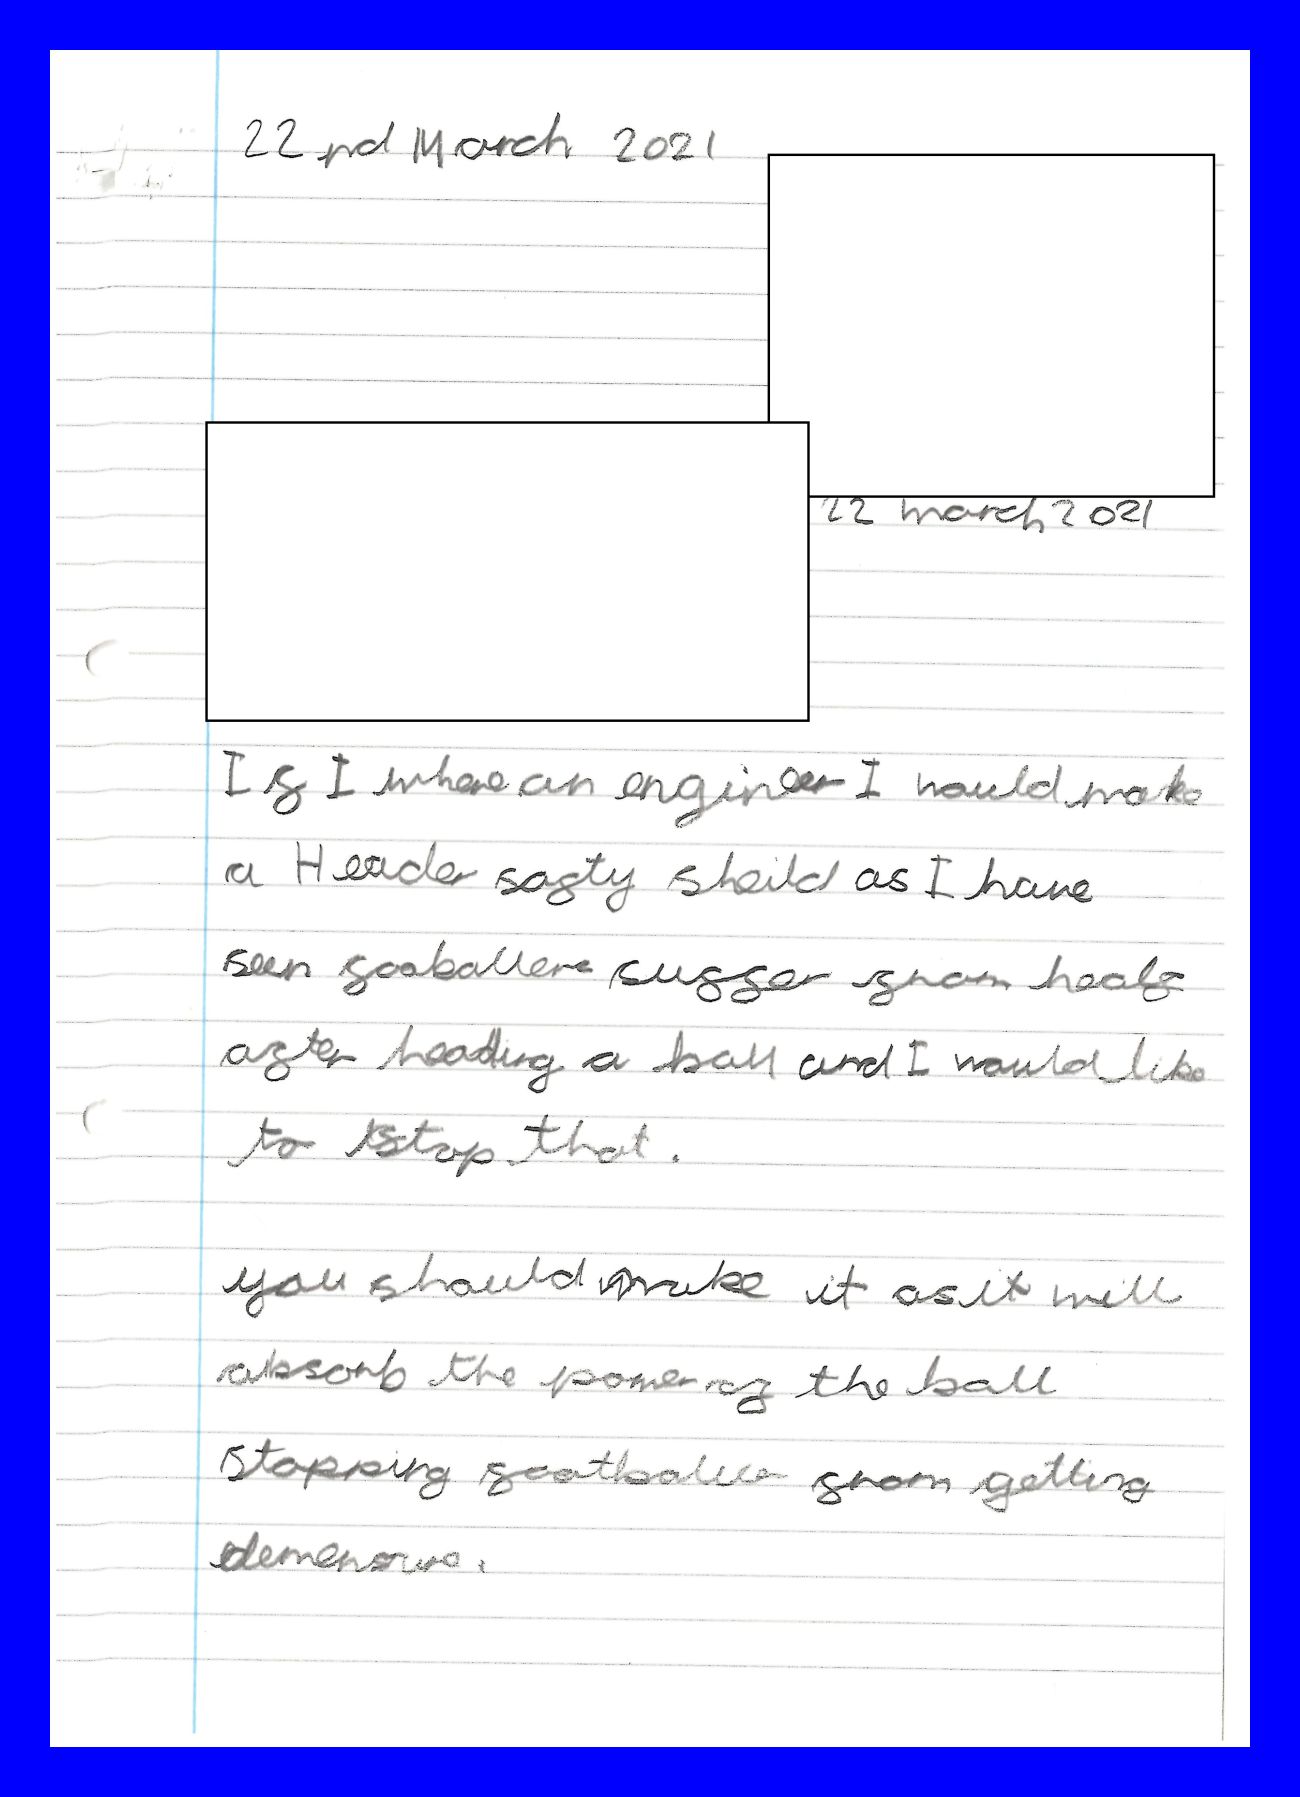 22nd March 2021
22 march 2021
If I where an engineer I would make
a Header safty sheild as I have
seen fooballers suffer from
after heading a ball and I would like
to stop that.
you should make it as it will
absorb the power of the ball
stopping footballer from getting